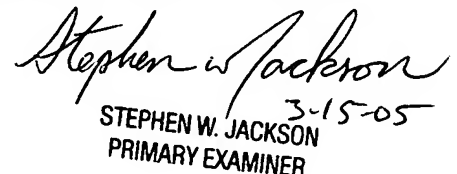 Stephen W Jackson
3-15-05
STEPHEN W. JACKSON
PRIMARY EXAMINER